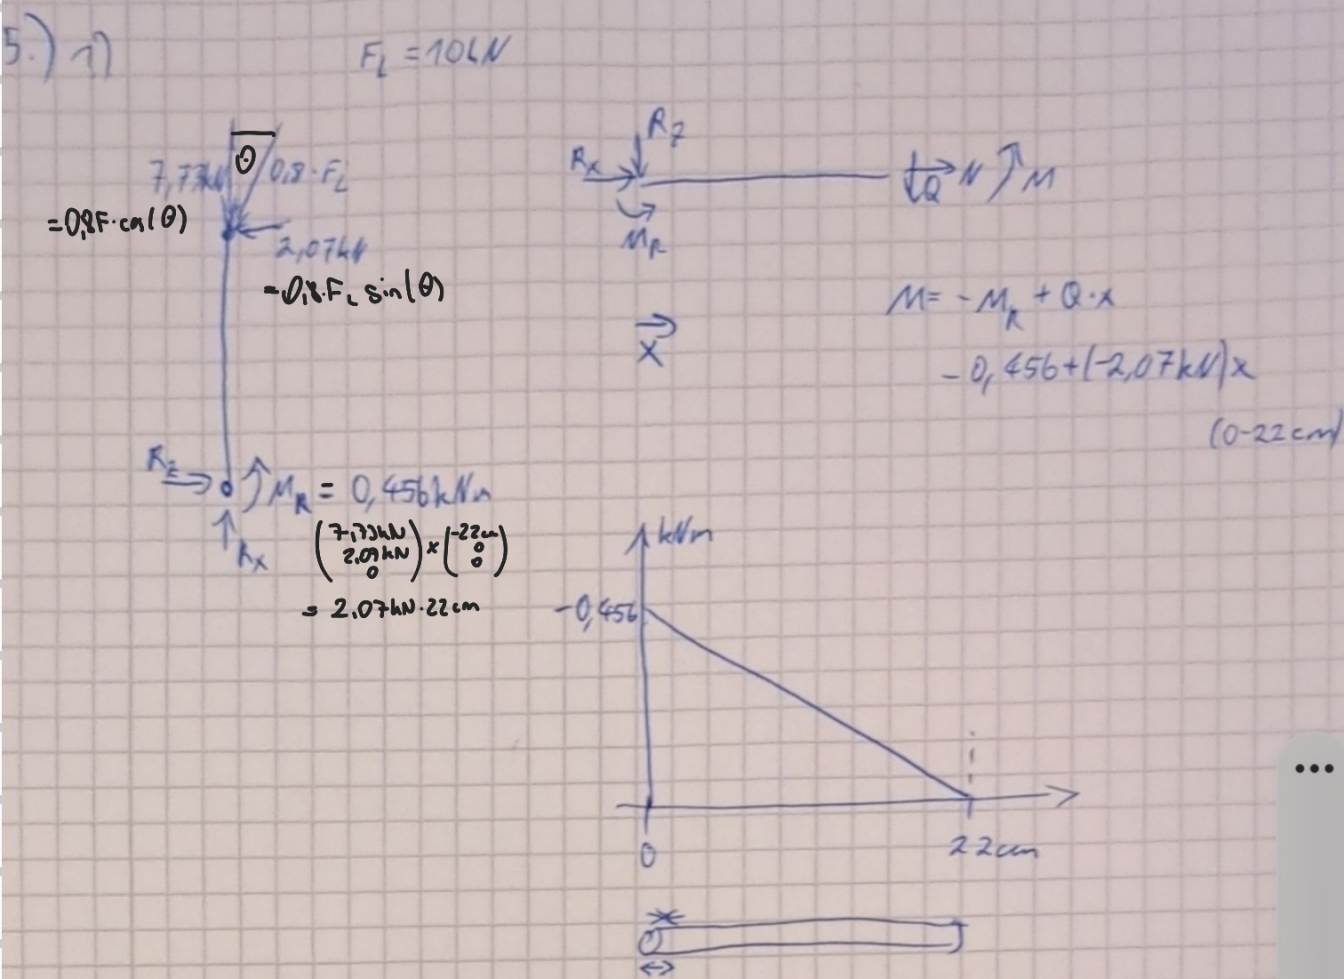 5.) 1)
F_L = 10kN
θ
7,73kN
0,8·F_L
= 0,8F·cos(θ)
2,07kN
= 0,8·F_L sin(θ)
R_z
M_R = 0,456kNm
R_x
(7,73kN 2.07kN 0) × (-22cm 0 0)
= 2.07kN·22cm
R_z
R_x
M_R
Q N M
x
M = -M_R + Q·x
-0,456+(-2,07kN)x
(0-22cm)
kNm
-0,456
0
22cm